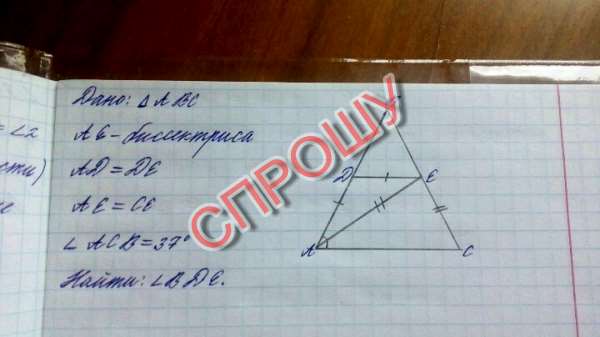 Дано: △ABC
AE-биссектриса
AD=DE
AE=CE
∠ACB=37°
Найти: ∠BDE.
=∠2
сти)
D E
A C
СПРОШУ